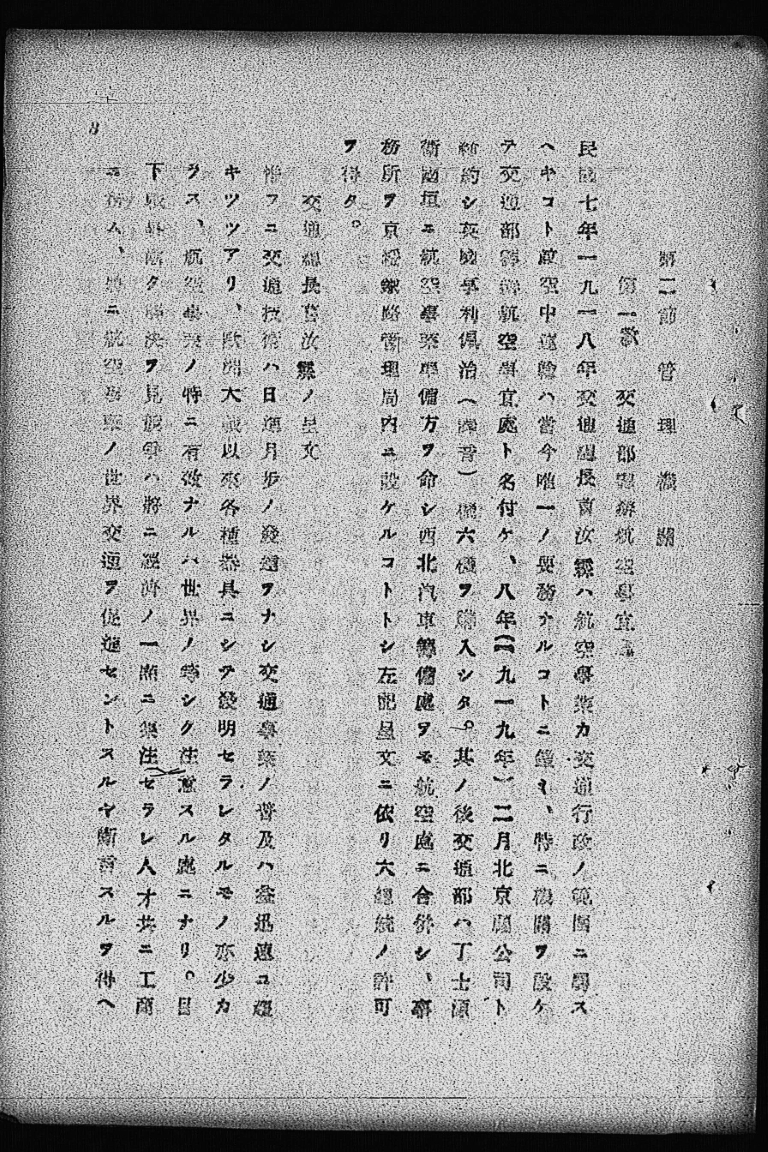 第二節 管理機關
第一款 交通部籌辦航空事宜處
民國七年一九一八年交通總長曹汝霖ハ航空事業カ交通行政ノ範圍ニ屬ス
ヘキコト並空中運輸ハ當今唯一ノ要務ナルコトニ鑑ミ、特ニ機關ヲ設ケ
テ交通部籌辦航空事宜處ト名付ケ、八年(一九一九年)二月北京 公司ト
契約シ英國 六機ヲ購入シタ。其ノ後交通部ハ丁士源
衛國垣ニ航空事業準備方ヲ命シ西北汽車籌備處ヲモ航空處ニ合併シ、事
務所ヲ京綏鐵路管理局内ニ設ケルコトトシ左記呈文ニ依リ大總統ノ許可
ヲ得タ。
交通總長曹汝霖ノ呈文
惟フニ交通技術ハ日進月歩ノ發達ヲナシ交通事業ノ普及ハ益迅速ニ趨
キツツアリ、歐洲大戰以來各種器具ニシテ發明セラレタルモノ亦少カ
ラス、航空事業ノ特ニ有效ナルハ世界ノ等シク注意スル處ニナリ。目
下 ヲ見 爭ハ將ニ經濟ノ一 ニ集注セラレ人才共ニ工商
ニ 、特ニ航空事業ノ世界交通ヲ促進セントスルヤ ルヲ得ヘ
3